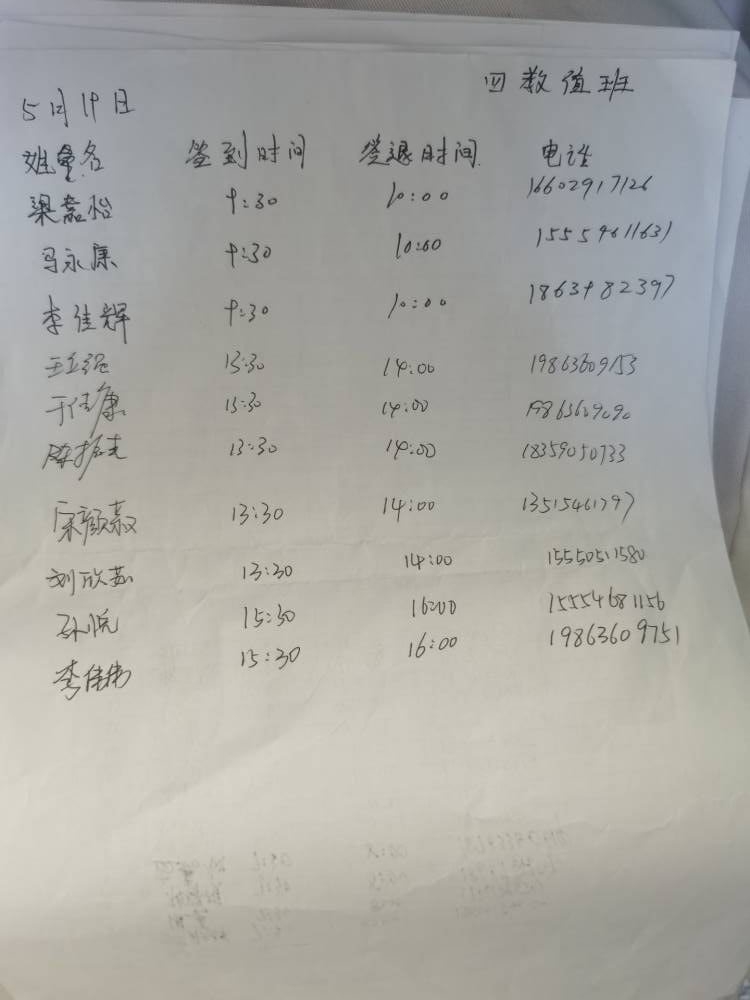 四教值班
5月19日
姓名 签到时间 签退时间 电话
梁嘉怡 9:30 10:00 16602917126
马永康 9:30 10:00 15554611631
李佳辉 9:30 10:00 1863482397
13:30 14:00 19863609153
于佳康 13:30 14:00 19863609090
13:30 14:00 18359050733
宋颜敖 13:30 14:00 13515461797
刘欣茹 13:30 14:00 15550511580
孙悦 15:30 16:00 15554681156
李佳伟 15:30 16:00 19863609751